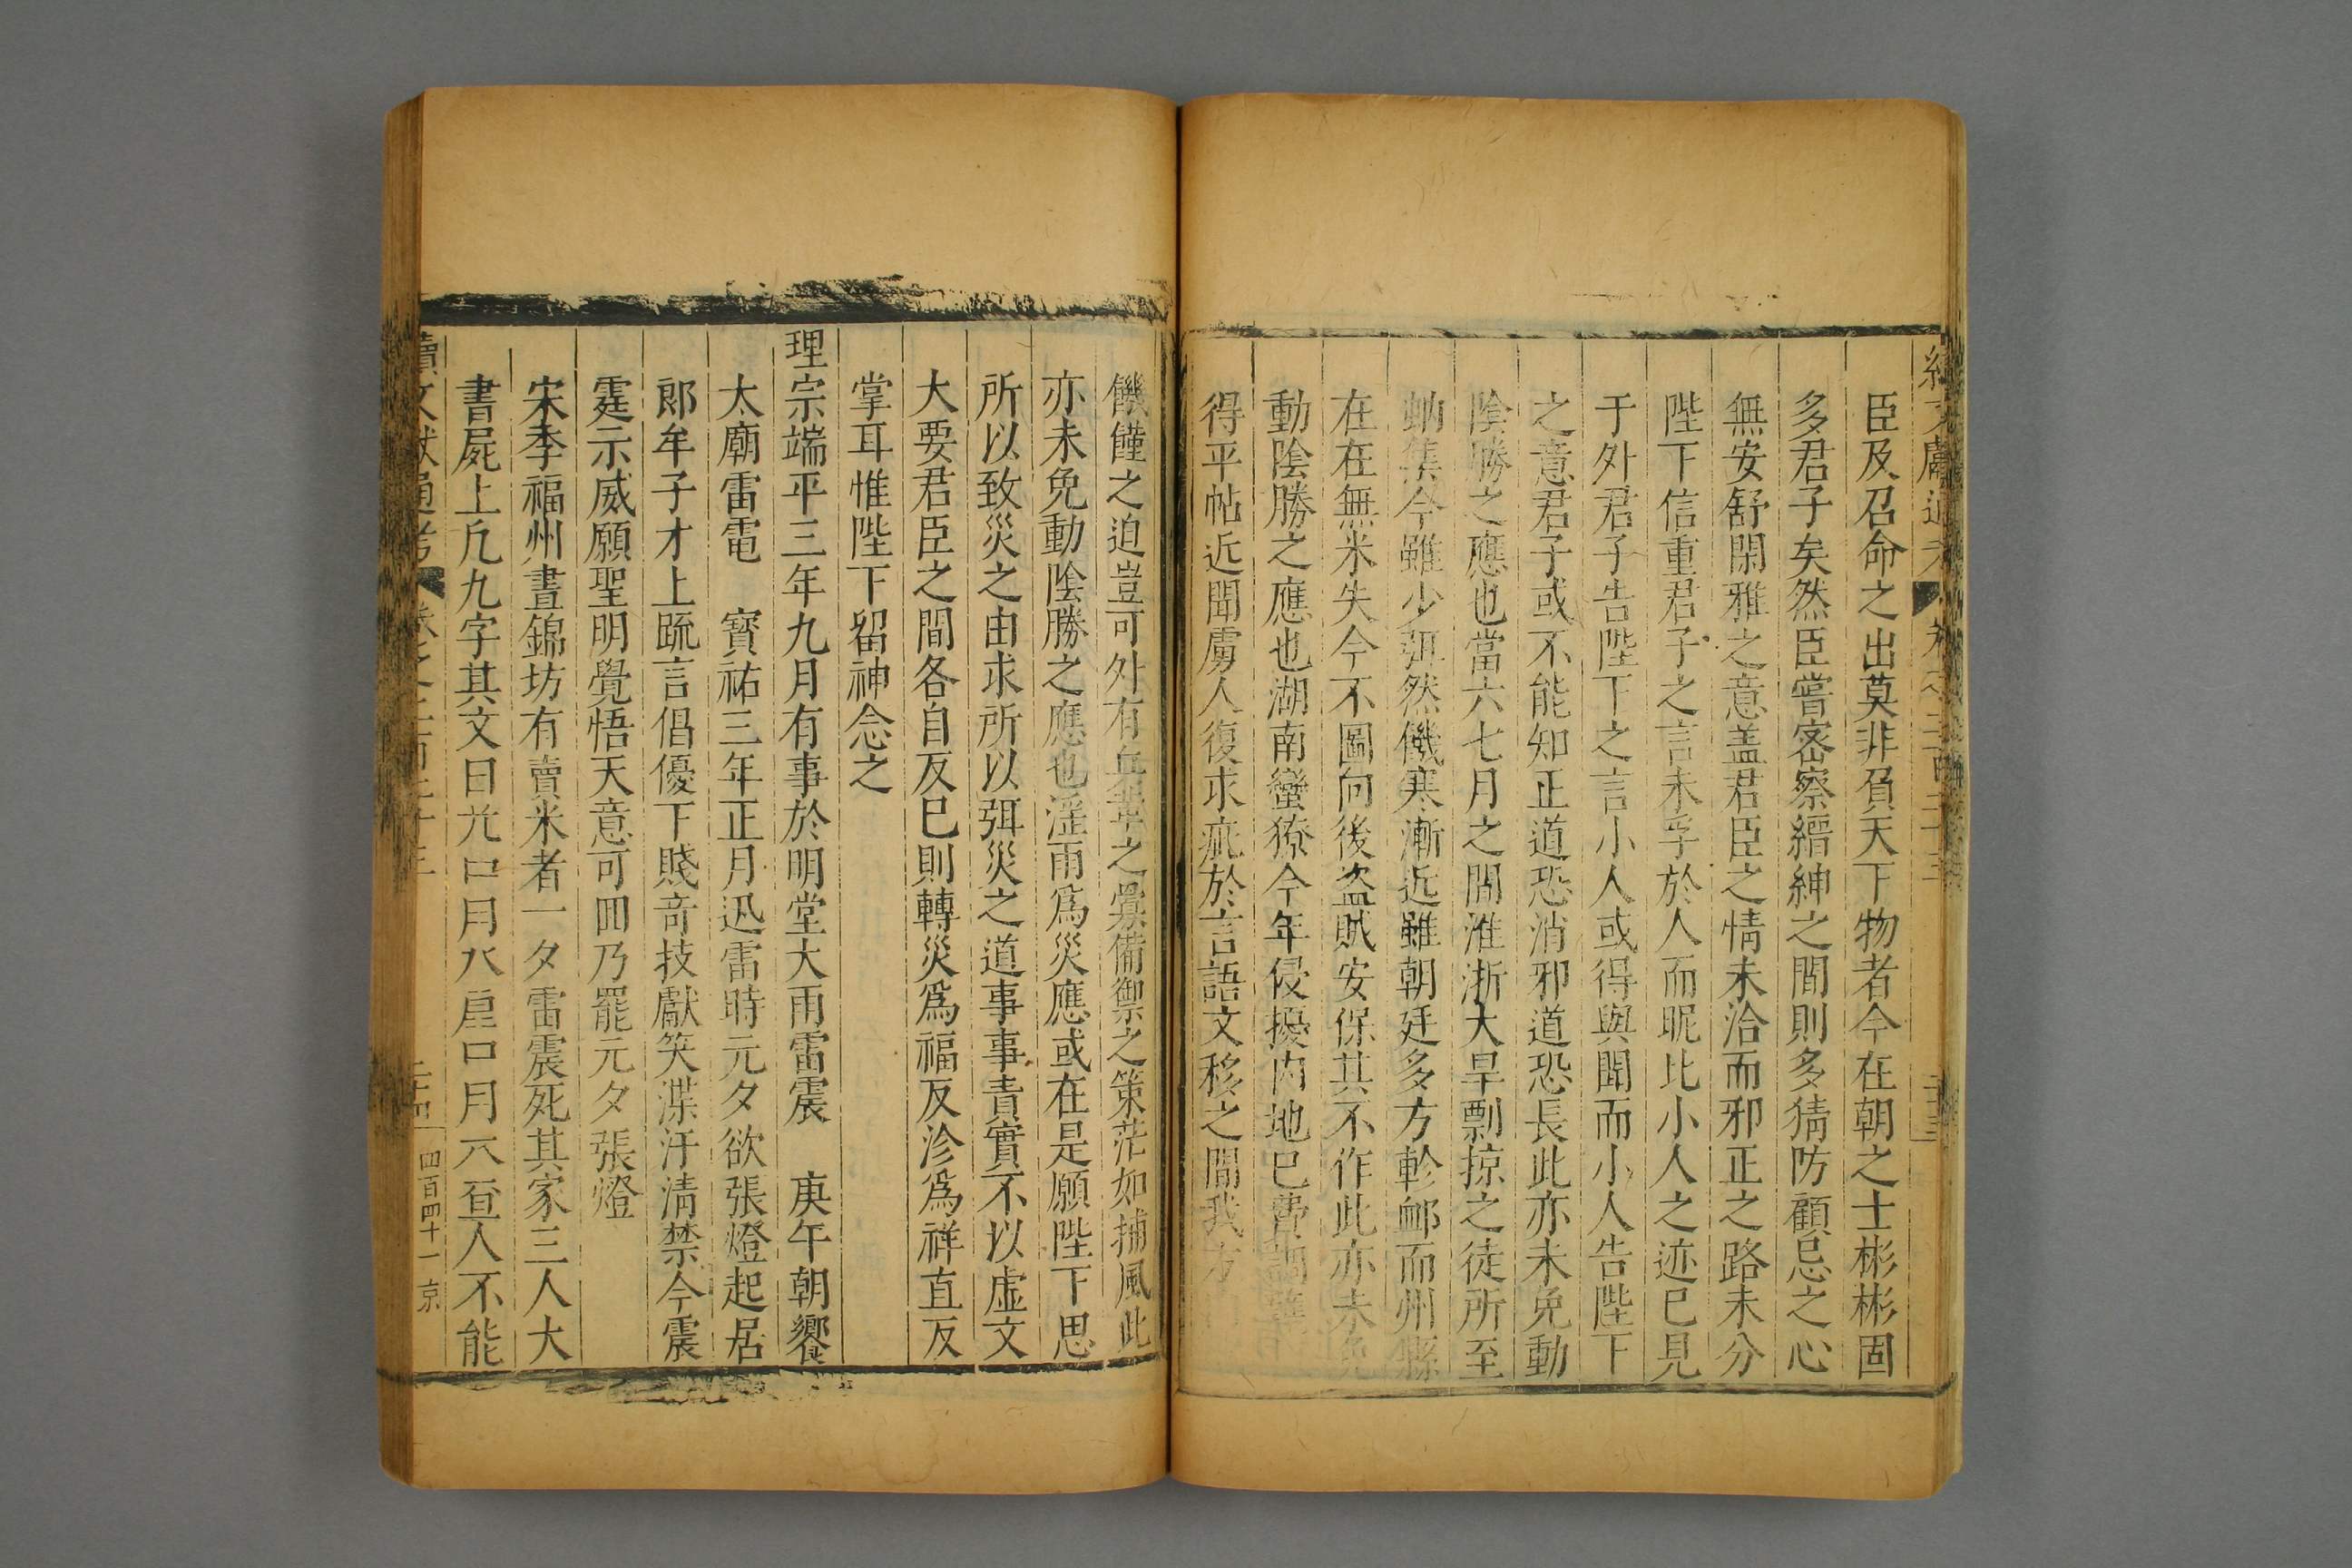 臣及召命之出莫非負天下物者今在朝之士彬彬固
多君子矣然臣嘗密察縉紳之間則多猜防顧忌之心
無安舒閑雅之意盖君臣之情未洽而邪正之路未分
陛下信重君子之言未孚於人而昵比小人之迹已見
于外君子告陛下之言小人或得與聞而小人告陛下
之意君子或不能知正道恐消邪道恐長此亦未免動
陰勝之應也當六七月之間淮浙大旱剽掠之徒所至
蚋集今雖少弭然饑寒漸近雖朝廷多方軫卹而州縣
在在無米失今不圖向後盗賊安保其不作此亦未免
動陰勝之應也湖南蠻獠今年侵擾内地已費調
得平帖近聞虜人復求疵於言語文移之間我方
饑饉之迫豈可外有兵革之釁備禦之策茫如捕風此
亦未免動陰勝之應也淫雨爲災應或在是願陛下思
所以致災之由求所以弭災之道事事責實不以虚文
大要君臣之間各自反已則轉災爲福反沴爲祥直反
掌耳惟陛下留神念之
理宗端平三年九月有事於明堂大雨雷震　庚午朝饗
太廟雷電　寳祐三年正月迅雷時元夕欲張燈起居
郎牟子才上疏言倡優下賤竒技獻笑渫汙清禁今震
霆示威願聖明覺悟天意可囬乃罷元夕張燈
宋季福州晝錦坊有賣米者一夕雷震死其家三人大
書屍上凡九字其文曰 口月八 口月 亘人不能
續文獻通考 卷之二百二十三 二十四 四百四十一 京